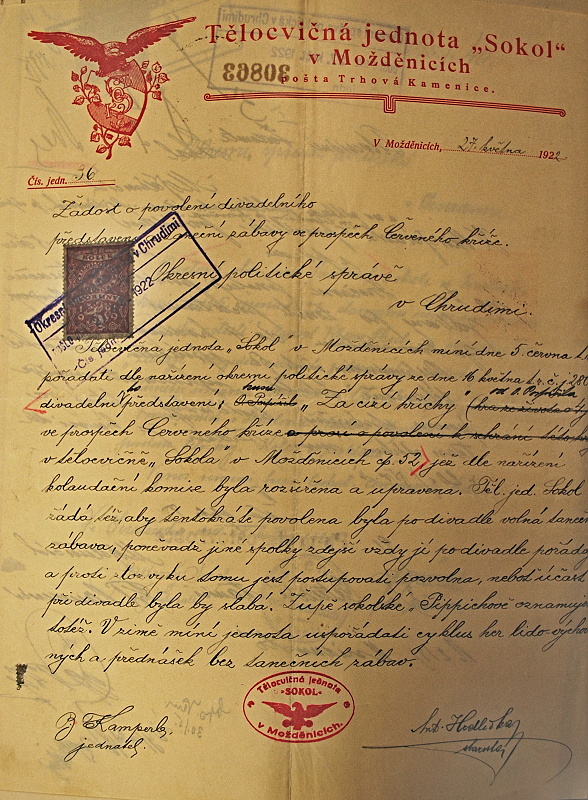 Tělocvičná jednota „Sokol“
v Možděnicích
pošta Trhová Kamenice.
30863
V Možděnicích, 27. května 1922
Čís. jedn. 36
Žádost o povolení divadelního
představení taneční zábavy ve prospěch Červeného kříže.
v Chrudimi
1922
Okresní politické správě
v Chrudimi.
Tělocvičná jednota „Sokol“ v Možděnicích míní dne 5. června
pořádati dle nařízení okresní politické správy ze dne 16 května t.r. č.j. 280
divadelní představení, „Za cizí hříchy“
ve prospěch Červeného kříže a prosí o povolení k
v tělocvičně „Sokola“ v Možděnicích čp. 52, jež dle nařízení
kolaudační komise byla rozšířena a upravena. Těl. jed. Sokol
žádá též, aby tentokráte povolena byla po divadle volná taneč
zábava, poněvadž jiné spolky zdejší vždy ji po divadle pořáda
a proti zlozvyku tomu jest postupovati pozvolna, neboť účast
při divadle byla by slabá. Župě sokolské „Pippichově oznamuje
totéž. V zimě míní jednota uspořádati cyklus her lido výcho
ných a přednášek bez tanečních zábav.
Tělocvičná jednota
„SOKOL“
v Možděnicích.
Kamperle
jednatel.
Ant. Hudlička
starosta